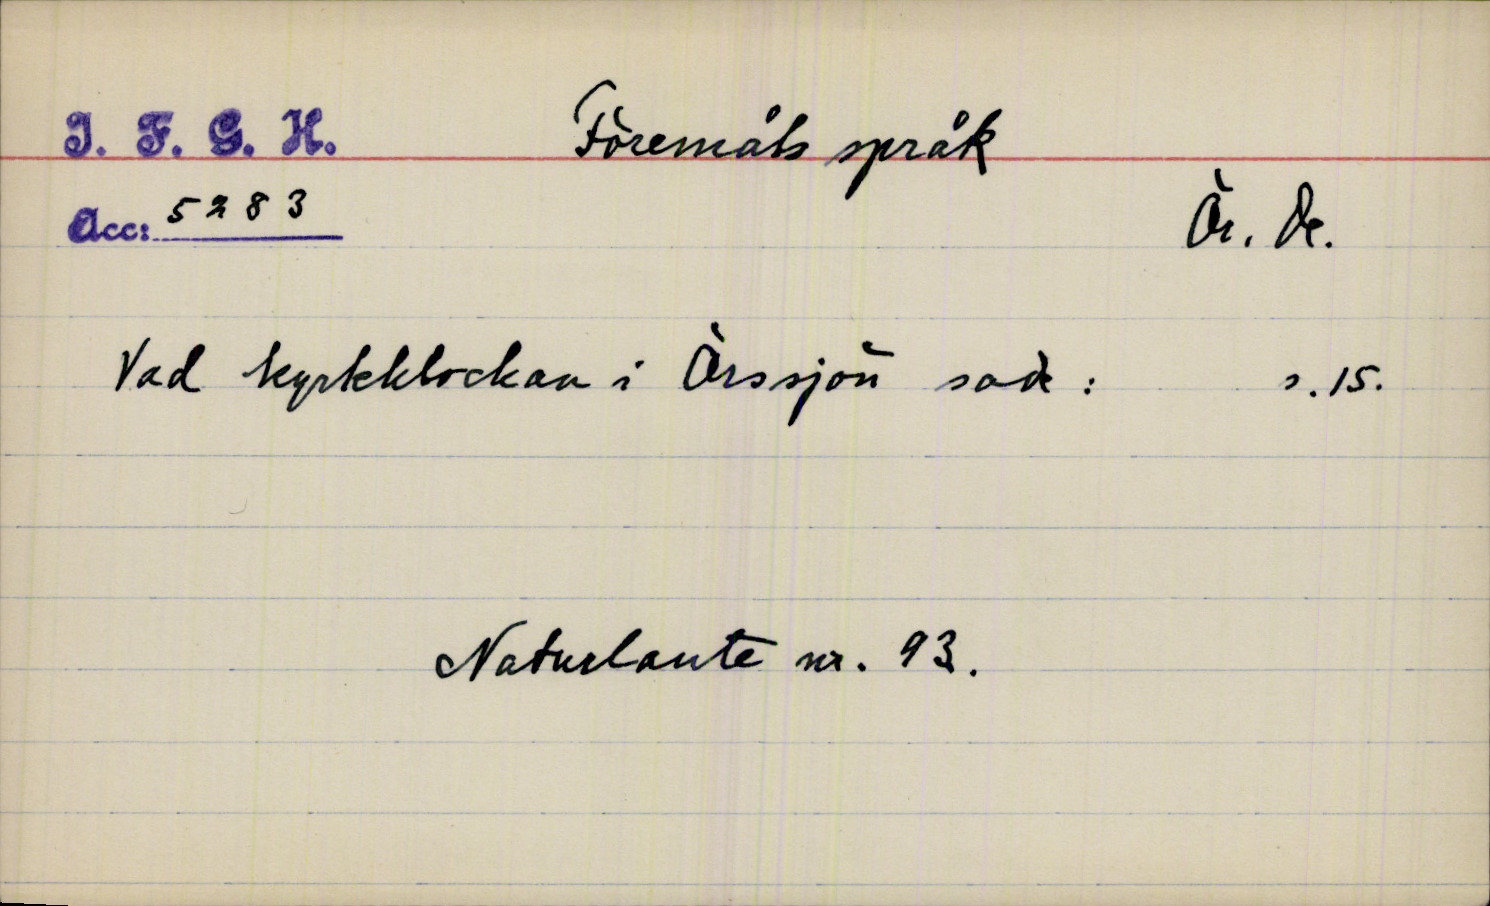 I. F. G. H.
Föremåls språk
Acc: 5283
Ör. De.
Vad kyrkklockan i Örssjön sade: s. 15.
Naturlaute nr. 93.